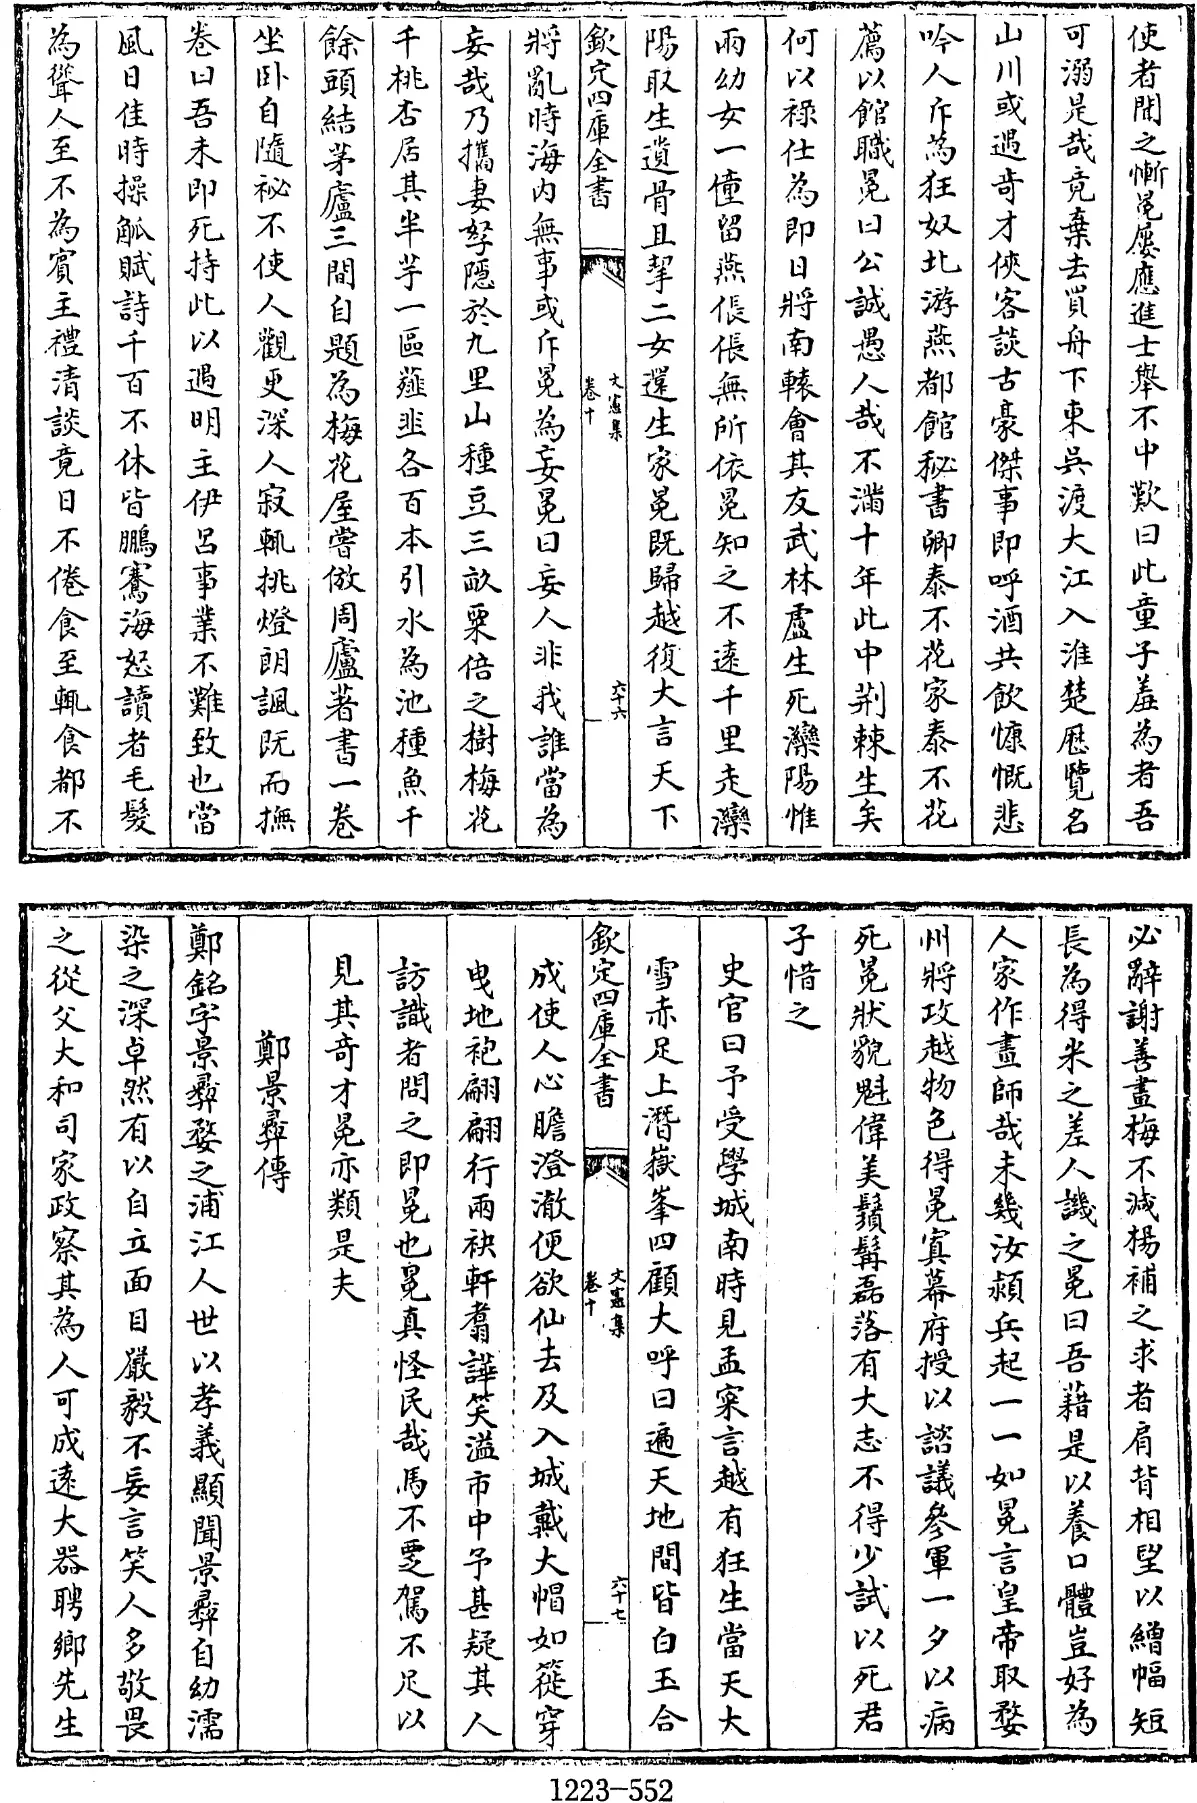 使者聞之慚冕屢應進士舉不中歎曰此童子羞為者吾
可溺是哉竟棄去買舟下東吳渡大江入淮楚歷覽名
山川或遇奇才俠客談古豪傑事即呼酒共飲慷慨悲
吟人斥為狂奴北游燕都館秘書卿泰不花家泰不花
薦以館職冕曰公誠愚人哉不滿十年此中荆棘生矣
何以祿仕為即日將南轅會其友武林盧生死灤陽惟
兩幼女一僮留燕倀倀無所依冕知之不遠千里走灤
陽取生遺骨且挈二女還生家冕既歸越復大言天下
欽定四庫全書
文憲集
卷十
六十六
將亂時海内無事或斥冕為妄冕曰妄人非我誰當為
妄哉乃攜妻孥隱於九里山種豆三畝粟倍之樹梅花
千桃杏居其半芋一區薤韭各百本引水為池種魚千
餘頭結茅廬三間自題為梅花屋嘗倣周廬著書一卷
坐卧自隨祕不使人觀更深人寂輒挑燈朗諷既而撫
卷曰吾未即死持此以遇明主伊呂事業不難致也當
風日佳時操觚賦詩千百不休皆鵬騫海怒讀者毛髮
為聳人至不為賓主禮清談竟日不倦食至輒食都不
必辭謝善畫梅不減楊補之求者肩背相望以繒幅短
長為得米之差人譏之冕曰吾藉是以養口體豈好為
人家作畫師哉未幾汝潁兵起一一如冕言皇帝取婺
州將攻越物色得冕寘幕府授以諮議參軍一夕以病
死冕狀貌魁偉美鬚髯磊落有大志不得少試以死君
子惜之
史官曰予受學城南時見孟寀言越有狂生當天大
雪赤足上潛嶽峯四顧大呼曰遍天地間皆白玉合
欽定四庫全書
文憲集
卷十
六十七
成使人心膽澄澈便欲仙去及入城戴大帽如簁穿
曳地袍翩翩行兩袂軒翥譁笑溢市中予甚疑其人
訪識者問之即冕也冕真怪民哉馬不覂駕不足以
見其奇才冕亦類是夫
鄭景彝傳
鄭銘字景彝婺之浦江人世以孝義顯聞景彝自幼濡
染之深卓然有以自立面目嚴毅不妄言笑人多敬畏
之從父大和司家政察其為人可成遠大器聘鄉先生
1223-552